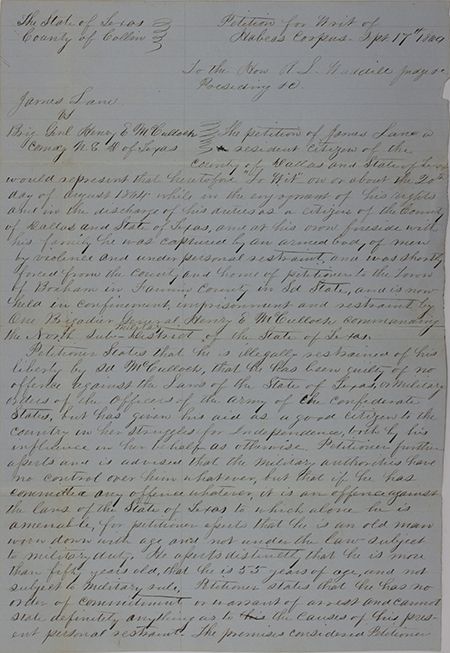 The State of Texas
County of Collin
Petition for Writ of
Habeas Corpus - Spt 17th 1864
To the Hon R L Waddill Judge &c
Presiding &c
James Lane
vs
Brig Genl Henry E McCulloch
Comdg N. S. D of Texas
The petition of James Lane a
resident citizen of the
County of Dallas and State of Texas
would represent that heretofore "To Wit" on or about the 20th
day of August 1864 while in the enjoyment of his rights
and in the discharge of his duties as a citizen of the County
of Dallas and State of Texas, and at his own fireside with
his family he was captured by an armed body of men
by violence and under personal restraint, and was shortly
forced from the county and home of petitioner to the Town
of Bonham in Fannin County in Sd State, and is now
held in confinement, imprisonment and restraint by
One Brigadier General Henry E McCulloch commanding
the North Sub-District of the State of Texas.
Petitioner States that he is illegally restrained of his
liberty by sd McCulloch, that he has been guilty of no
offence against the Laws of the State of Texas, or military
orders of the officers of the army of the Confederate
States, but has given his aid as a good citizen to the
country in her struggles for Independence, both by his
influence in her behalf as otherwise. Petitioner further
asserts and is advised that the military authorities have
no control over him whatever, but that if he has
committed any offence whatever, it is an offence against
the laws of the State of Texas to which alone he is
amenable, for petitioner asserts that he is an old man
worn down with age and not under the law subject
to military duty. He asserts distinctly that he is more
than fifty years old, that he is 55 years of age, and not
subject to military rule. Petitioner states that he has no
order of commitment, or warrant of arrest and cannot
state definitely anything as to the causes of his pres-
ent personal restraint. The premises considered Petitioner